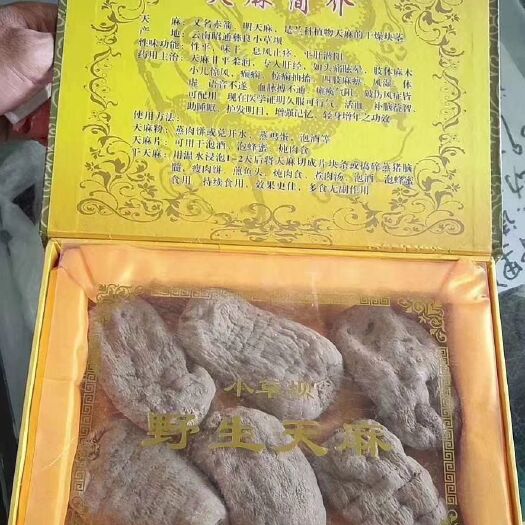 天麻简介
天 麻：又名赤箭、明天麻，是兰科植物天麻的干燥块茎
产 地：云南昭通彝良小草坝
性味功能：性平，味干，息风止痉，平肝潜阳
药用主治：天麻甘平柔润，专入肝经，如头痛眩晕，肢体麻木
小儿惊风，癫痫，抽搐，四肢麻痪，风湿，体
虚，语言不遂，血脉不通，气阳，破伤风症皆
可配用，现在医学证明久服可行气，活血，补脑益智、
助睡眠，护发明目，增强记忆，轻身增年之功效
使用方法：
天麻粉：蒸肉饼或兑开水、蒸鸡蛋，泡酒等
天麻片：可用于泡酒、泡蜂蜜、炖肉食
干天麻：用温水浸泡1-2天后将天麻切成片块条或捣碎蒸猪脑
髓，瘦肉饼，煎鱼头，炖肉食、煮肉汤、泡酒、泡蜂蜜
食用，持续食用，效果更佳，多食无副作用
小草坝
野生天麻